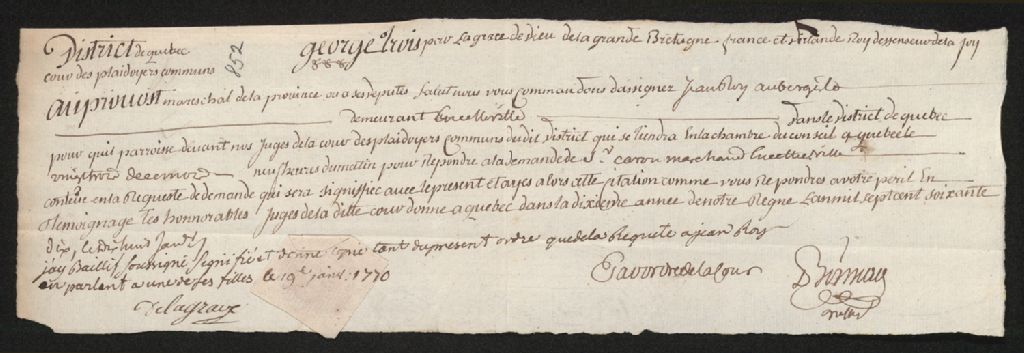 District de quebec
cour des plaidoyers communs
852
george trois par La grace de Dieu de la grande Bretagne france et irlande Roy deffenseur de la foy
au prouost mareschal de la prouince ou a ses deputés Salut nous vous commandons dassigner Jean Roy aubergiste
demeurant En cette ville dans le district de quebec
pour quil paroisse deuant nos Juges de la cour des plaidoyers communs du dit district qui se tiendra En la chambre du conseil a quebec le
neuf heures du matin pour Repondre a la demande de Sr caron marchand En cette ville
contenue en la Requeste de demande qui sera signiffiée auec le present et ayes alors cette citation comme vous Repondres a votre peril En
temoignage les honnorables Juges de la ditte cour donne a quebec dans la dixieme année de notre Regne Lan mil sept cent soixante
dix, le
jay Baillif soussigné signifié et donné copie tant du present ordre que de la Requete a jean Roy
en parlant a une de ses filles le 19e janr. 1770
Par ordre de la Cour